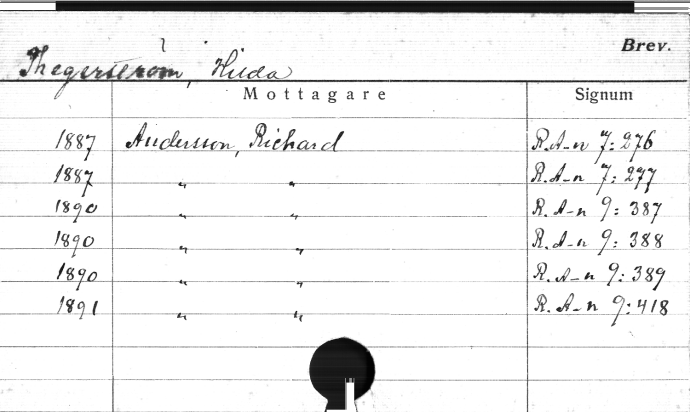 Brev.
Thegerström, Hilda
Mottagare Signum
1887 Andersson, Richard R. A-n 7: 276
1887 " " R. A-n 7: 277
1890 " " R. A-n 9: 387
1890 " " R. A-n 9: 388
1890 " " R. A-n 9: 389
1891 " " R. A-n 9: 418